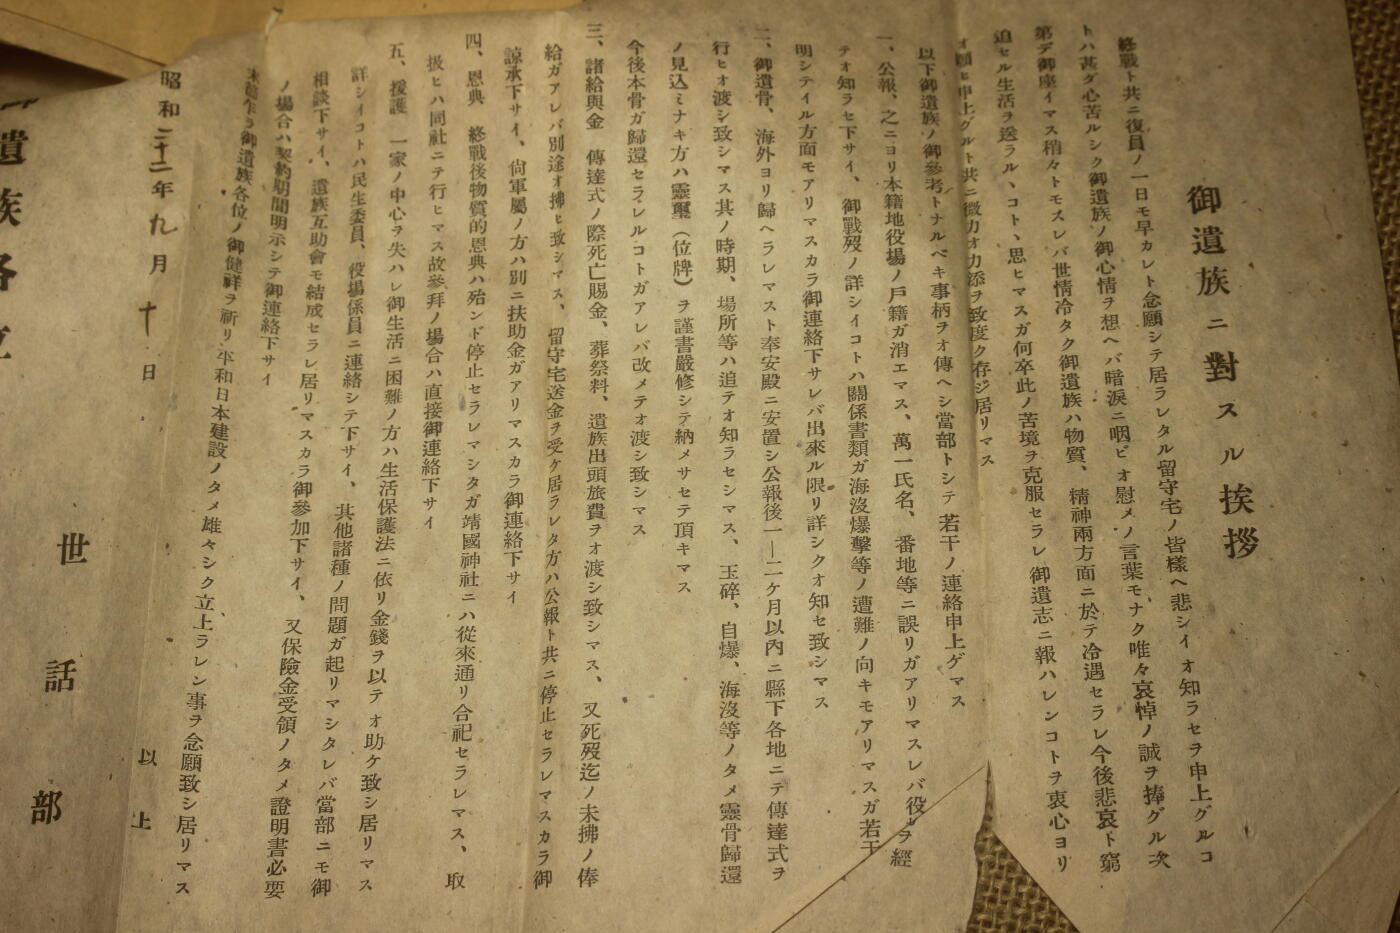 御遺族ニ對スル挨拶
終戰ト共ニ復員ノ一日モ早カレト念願シテ居ラレタル留守宅ノ皆樣ヘ悲シイオ知ラセヲ申上グルコ
トハ甚ダ心苦ルシク御遺族ノ御心情ヲ想ヘバ暗淚ニ咽ビオ慰メノ言葉モナク唯々哀悼ノ誠ヲ捧グル次
第デ御座イマス稍々トモスレバ世情冷タク御遺族ハ物質、精神兩方面ニ於テ冷遇セラレ今後悲哀ト窮
迫セル生活ヲ送ラルヽコトヽ思ヒマスガ何卒此ノ苦境ヲ克服セラレ御遺志ニ報ハレンコトヲ衷心ヨリ
オ願ヒ申上グルト共ニ微力オ力添ヲ致度ク存ジ居リマス
以下御遺族ノ御參考トナルベキ事柄ヲオ傳ヘシ當部トシテ若干ノ連絡申上ゲマス
一、公報、之ニヨリ本籍地役場ノ戶籍ガ消エマス、萬一氏名、番地等ニ誤リガアリマスレバ役ヲ經
テオ知ラセ下サイ、御戰歿ノ詳シイコトハ關係書類ガ海沒爆擊等ノ遭難ノ向キモアリマスガ若干
明シテイル方面モアリマスカラ御連絡下サレバ出來ル限リ詳シクオ知セ致シマス
二、御遺骨、海外ヨリ歸ヘラレマスト奉安殿ニ安置シ公報後一―二ケ月以內ニ縣下各地ニテ傳達式ヲ
行ヒオ渡シ致シマス其ノ時期、場所等ハ追テオ知ラセシマス、玉碎、自爆、海沒等ノタメ靈骨歸還
ノ見込ミナキ方ハ靈璽(位牌)ヲ謹書嚴修シテ納メサセテ頂キマス
今後本骨ガ歸還セラレルコトガアレバ改メテオ渡シ致シマス
三、諸給與金　傳達式ノ際死亡賜金、葬祭料、遺族出頭旅費ヲオ渡シ致シマス、又死歿迄ノ未拂ノ俸
給ガアレバ別途オ拂ヒ致シマス、留守宅送金ヲ受ケ居ラレタ方ハ公報ト共ニ停止セラレマスカラ御
諒承下サイ、尙軍屬ノ方ハ別ニ扶助金ガアリマスカラ御連絡下サイ
四、恩典　終戰後物質的恩典ハ殆ンド停止セラレマシタガ靖國神社ニハ從來通リ合祀セラレマス、取
扱ヒハ同社ニテ行ヒマス故參拜ノ場合ハ直接御連絡下サイ
五、援護　一家ノ中心ヲ失ハレ御生活ニ困難ノ方ハ生活保護法ニ依リ金錢ヲ以テオ助ケ致シ居リマス
詳シイコトハ民生委員、役場係員ニ連絡シテ下サイ、其他諸種ノ問題ガ起リマシタレバ當部ニモ御
相談下サイ、遺族互助會モ結成セラレ居リマスカラ御參加下サイ、又保險金受領ノタメ證明書必要
ノ場合ハ契約期間明示シテ御連絡下サイ
末筆乍ラ御遺族各位ノ御健祥ヲ祈リ平和日本建設ノタメ雄々シク立上ラレン事ヲ念願致シ居リマス
以上
昭和二十二年九月十日
世話部
遺族各位